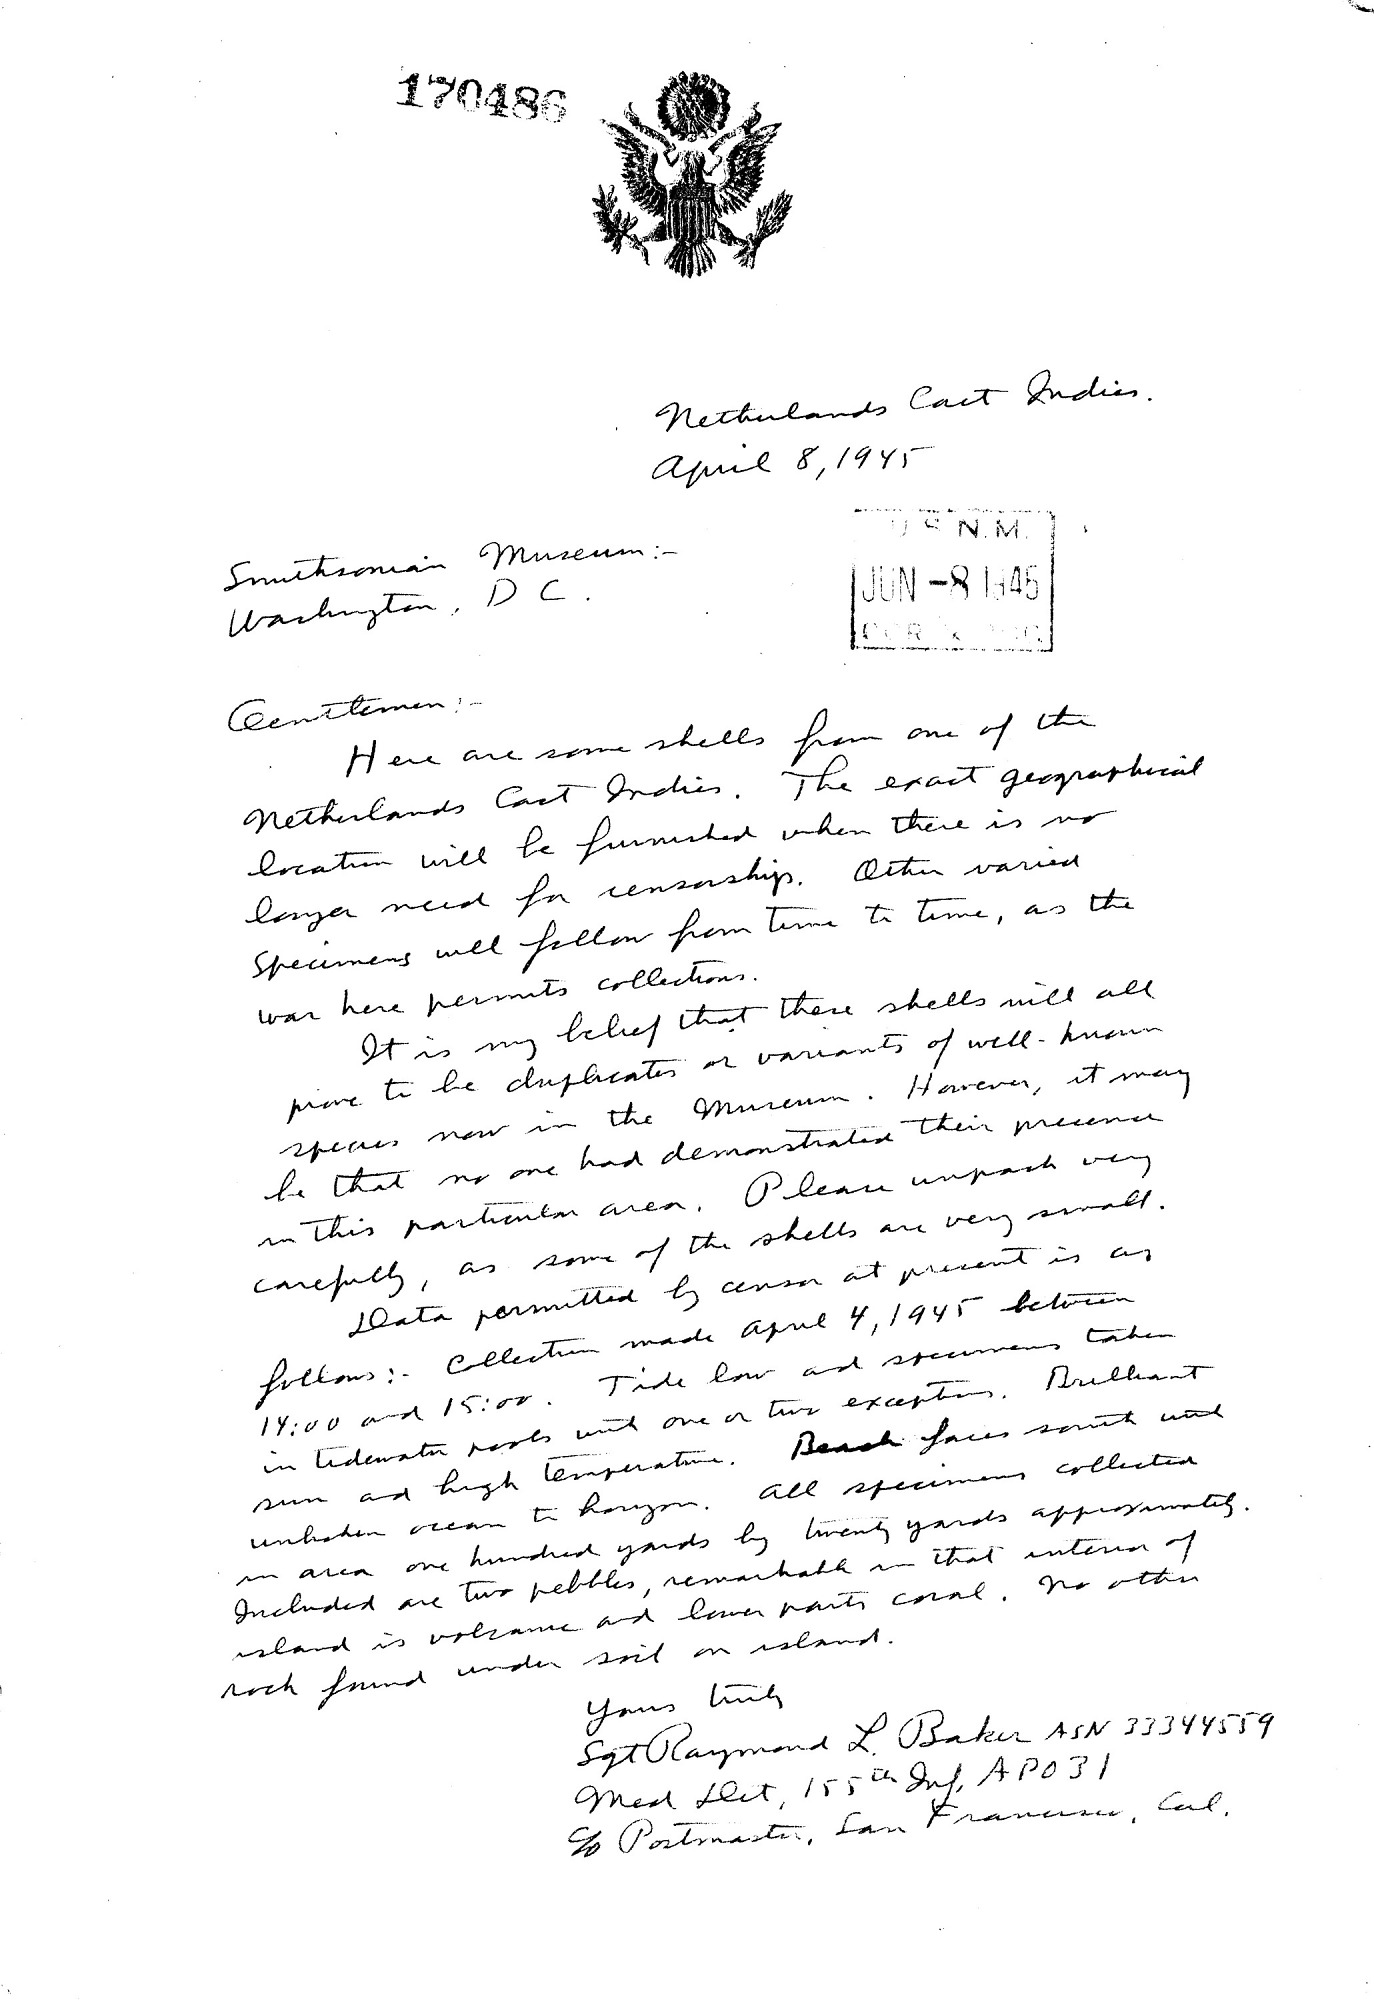 170486
Netherlands East Indies.
April 8, 1945
U S N.M.
JUN -8 1945
Smithsonian Museum:-
Washington, D C.
Gentlemen:-
Here are some shells from one of the
Netherlands East Indies. The exact geographical
location will be furnished when there is no
longer need for censorship. Other varied
specimens will follow from time to time, as the
war here permits collections.
It is my belief that these shells will all
prove to be duplicates or variants of well-known
species now in the Museum. However, it may
be that no one had demonstrated their presence
in this particular area. Please unpack very
carefully, as some of the shells are very small.
Data permitted by censor at present is as
follows:- Collection made April 4, 1945 between
14:00 and 15:00. Tide low and specimens taken
in tidewater pools with one or two exceptions. Brilliant
sun and high temperature. Beach faces south with
unbroken ocean to horizon. All specimens collected
in area one hundred yards by twenty yards approximately.
Included are two pebbles, remarkable in that interior of
island is volcanic and lower parts coral. No other
rock found under soil on island.
Yours truly
Sgt Raymond L. Baker ASN 33344559
Med Det, 155th Inf, APO 31
c/o Postmaster, San Francisco, Cal.